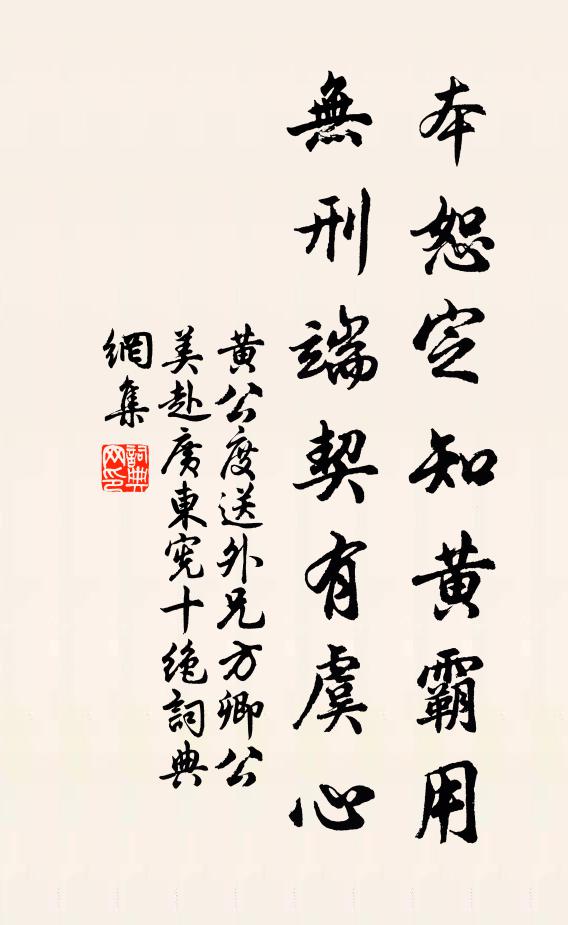 本恕定知黄霸用
無刑端契有虞心
黄公度送外兄方卿公
美赴廣東宪十绝詞典
網集
詞典网印